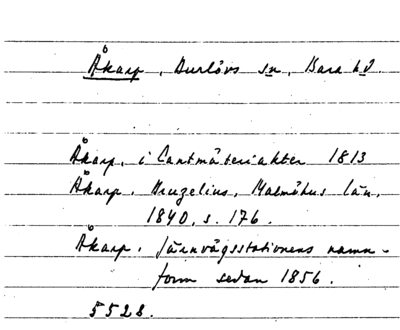 Åkarp, Burlövs sn, Bara hd
Åkarp, i Lantmäteriakter 1813
Åkarp. Bruzelius, Malmöhus län,
1840, s. 176.
Åkarp. Järnvägsstationens namn-
form sedan 1856.
5528.